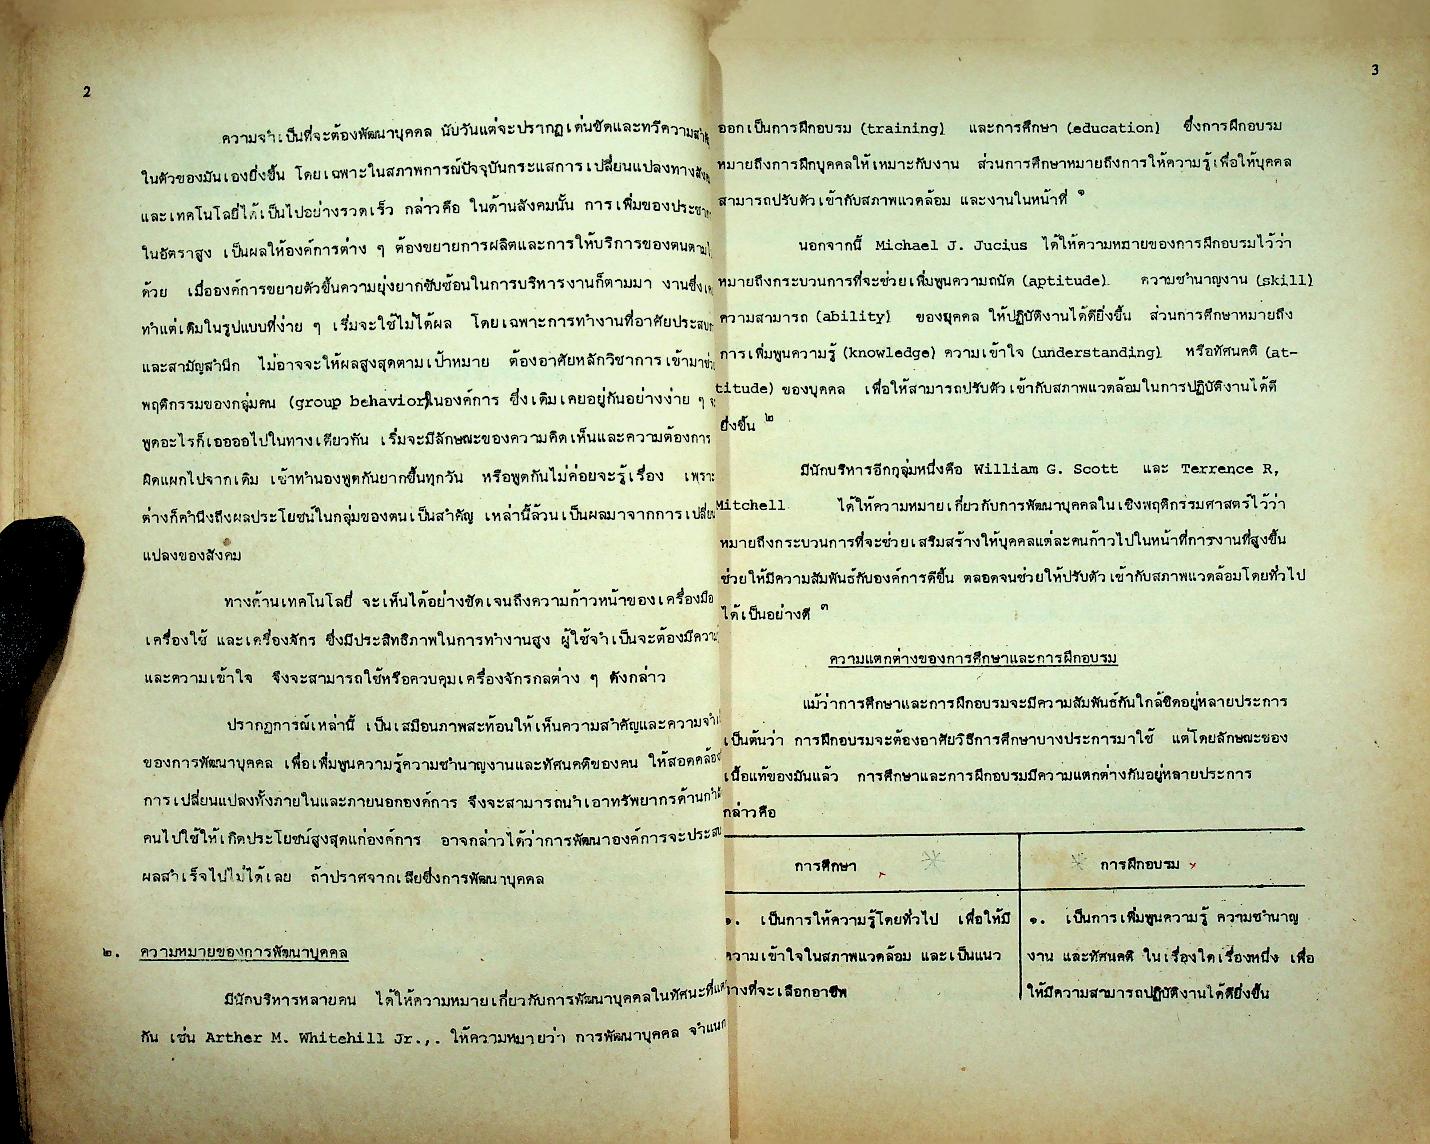 2
ความจำเป็นที่จะต้องพัฒนาบุคคล นับวันแต่จะปรากฏเด่นชัดและทวีความ
ในตัวของมันเองยิ่งขึ้น โดยเฉพาะในสภาพการณ์ปัจจุบันกระแสการเปลี่ยนแปลงทาง
และเทคโนโลยี่ได้เป็นไปอย่างรวดเร็ว กล่าวคือ ในด้านสังคมนั้น การเพิ่มของ
ในอัตราสูง เป็นผลให้องค์การต่าง ๆ ต้องขยายการผลิตและการให้บริการของตนตาม
ด้วย เมื่อองค์การขยายตัวขึ้นความยุ่งยากซับซ้อนในการบริหารงานก็ตามมา งานซึ่ง
ทำแต่เดิมในรูปแบบที่ง่าย ๆ เริ่มจะใช้ไม่ได้ผล โดยเฉพาะการทำงานที่อาศัย
และสามัญสำนึก ไม่อาจจะให้ผลสูงสุดตามเป้าหมาย ต้องอาศัยหลักวิชาการเข้ามา
พฤติกรรมของกลุ่มคน (group behavior)ในองค์การ ซึ่งเดิมเคยอยู่กันอย่างง่าย ๆ
พูดอะไรก็เออออไปในทางเดียวกัน เริ่มจะมีลักษณะของความคิดเห็นและความต้องการ
ผิดแผกไปจากเดิม เข้าทำนองพูดกันยากขึ้นทุกวัน หรือพูดกันไม่ค่อยจะรู้เรื่อง เพราะ
ต่างก็คำนึงถึงผลประโยชน์ในกลุ่มของตนเป็นสำคัญ เหล่านี้ล้วนเป็นผลมาจากการเปลี่ยน
แปลงของสังคม
ทางด้านเทคโนโลยี่ จะเห็นได้อย่างชัดเจนถึงความก้าวหน้าของเครื่องมือ
เครื่องใช้ และเครื่องจักร ซึ่งมีประสิทธิภาพในการทำงานสูง ผู้ใช้จำเป็นจะต้องมี
และความเข้าใจ จึงจะสามารถใช้หรือควบคุมเครื่องจักรกลต่าง ๆ ดังกล่าว
ปรากฏการณ์เหล่านี้ เป็นเสมือนภาพสะท้อนให้เห็นความสำคัญและความ
ของการพัฒนาบุคคล เพื่อเพิ่มพูนความรู้ความชำนาญงานและทัศนคติของคน ให้สอดคล้อง
การเปลี่ยนแปลงทั้งภายในและภายนอกองค์การ จึงจะสามารถนำเอาทรัพยากรด้าน
คนไปใช้ให้เกิดประโยชน์สูงสุดแก่องค์การ อาจกล่าวได้ว่าการพัฒนาองค์การจะประสบ
ผลสำเร็จไปไม่ได้เลย ถ้าปราศจากเสียซึ่งการพัฒนาบุคคล
๒. ความหมายของการพัฒนาบุคคล
มีนักบริหารหลายคน ได้ให้ความหมายเกี่ยวกับการพัฒนาบุคคลในทัศนะที่
กัน เช่น Arther M. Whitehill Jr.,. ให้ความหมายว่า การพัฒนาบุคคล จำแนก
3
ออกเป็นการฝึกอบรม (training) และการศึกษา (education) ซึ่งการฝึกอบรม
หมายถึงการฝึกบุคคลให้เหมาะกับงาน ส่วนการศึกษาหมายถึงการให้ความรู้เพื่อให้บุคคล
สามารถปรับตัวเข้ากับสภาพแวดล้อม และงานในหน้าที่ ๑
นอกจากนี้ Michael J. Jucius ได้ให้ความหมายของการฝึกอบรมไว้ว่า
หมายถึงกระบวนการที่จะช่วยเพิ่มพูนความถนัด (aptitude) ความชำนาญงาน (skill)
ความสามารถ (ability) ของบุคคล ให้ปฏิบัติงานได้ดียิ่งขึ้น ส่วนการศึกษาหมายถึง
การเพิ่มพูนความรู้ (knowledge) ความเข้าใจ (understanding) หรือทัศนคติ (at-
titude) ของบุคคล เพื่อให้สามารถปรับตัวเข้ากับสภาพแวดล้อมในการปฏิบัติงานได้ดี
ยิ่งขึ้น ๒
มีนักบริหารอีกกลุ่มหนึ่งคือ William G. Scott และ Terrence R,
Mitchell ได้ให้ความหมายเกี่ยวกับการพัฒนาบุคคลในเชิงพฤติกรรมศาสตร์ไว้ว่า
หมายถึงกระบวนการที่จะช่วยเสริมสร้างให้บุคคลแต่ละคนก้าวไปในหน้าที่การงานที่สูงขึ้น
ช่วยให้มีความสัมพันธ์กับองค์การดีขึ้น ตลอดจนช่วยให้ปรับตัวเข้ากับสภาพแวดล้อมโดยทั่วไป
ได้เป็นอย่างดี ๓
ความแตกต่างของการศึกษาและการฝึกอบรม
แม้ว่าการศึกษาและการฝึกอบรมจะมีความสัมพันธ์กันใกล้ชิดอยู่หลายประการ
เป็นต้นว่า การฝึกอบรมจะต้องอาศัยวิธีการศึกษาบางประการมาใช้ แต่โดยลักษณะของ
เนื้อแท้ของมันแล้ว การศึกษาและการฝึกอบรมมีความแตกต่างกันอยู่หลายประการ
กล่าวคือ
การศึกษา
การฝึกอบรม
๑. เป็นการให้ความรู้โดยทั่วไป เพื่อให้มี
ความเข้าใจในสภาพแวดล้อม และเป็นแนว
ทางที่จะเลือกอาชีพ
๑. เป็นการเพิ่มพูนความรู้ ความชำนาญ
งาน และทัศนคติ ในเรื่องใดเรื่องหนึ่ง เพื่อ
ให้มีความสามารถปฏิบัติงานได้ดียิ่งขึ้น